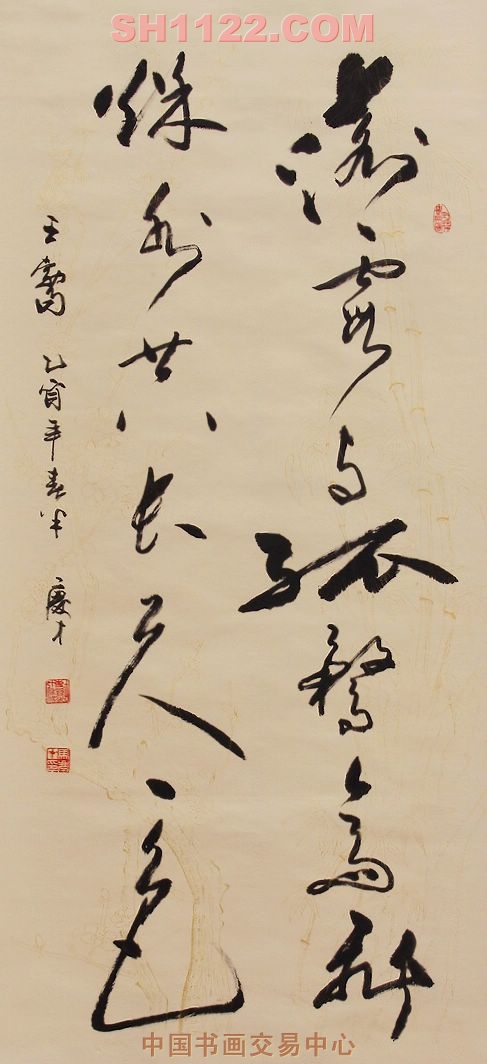 SH1122.COM
落霞与孤鹜齐飞
秋水共长天一色
王勃句 乙酉年春半 庆才
中国书画交易中心